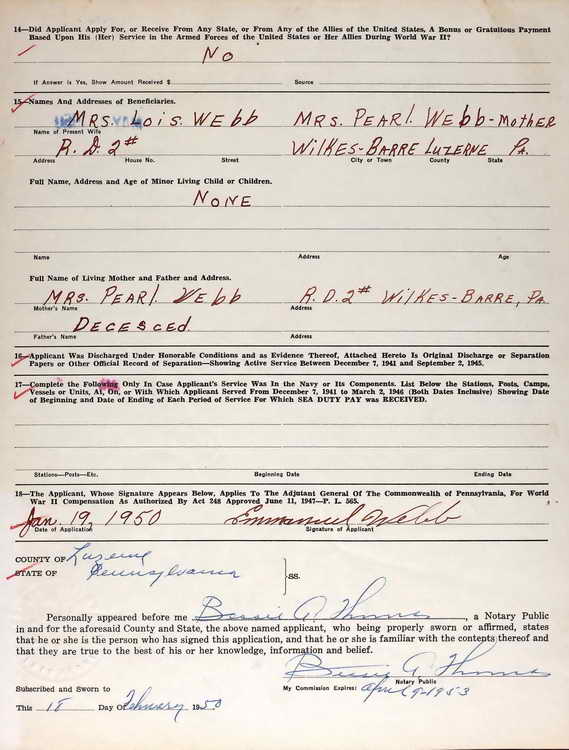 14—Did Applicant Apply For, or Receive From Any State, or From Any of the Allies of the United States, A Bonus or Gratuitous Payment
Based Upon His (Her) Service in the Armed Forces of the United States or Her Allies During World War II?
No
If Answer is Yes, Show Amount Received $ Source
15—Names And Addresses of Beneficiaries.
MRS. LOIS WEBB MRS. PEARL WEBB-MOTHER
Name of Present Wife
R.D. 2# WILKES-BARRE LUZERNE PA.
Address House No. Street City or Town County State
Full Name, Address and Age of Minor Living Child or Children.
NONE
Name Address Age
Full Name of Living Mother and Father and Address.
MRS. PEARL WEBB R.D. 2# WILKES-BARRE, PA
Mother's Name Address
DECESCED
Father's Name Address
16—Applicant Was Discharged Under Honorable Conditions and as Evidence Thereof, Attached Hereto Is Original Discharge or Separation
Papers or Other Official Record of Separation—Showing Active Service Between December 7, 1941 and September 2, 1945.
17—Complete the Following Only In Case Applicant's Service Was In the Navy or Its Components. List Below the Stations, Posts, Camps,
Vessels or Units, At, On, or With Which Applicant Served From December 7, 1941 to March 2, 1946 (Both Dates Inclusive) Showing Date
of Beginning and Date of Ending of Each Period of Service For Which SEA DUTY PAY was RECEIVED.
Stations—Posts—Etc. Beginning Date Ending Date
18—The Applicant, Whose Signature Appears Below, Applies To The Adjutant General Of The Commonwealth of Pennsylvania, For World
War II Compensation As Authorized By Act 248 Approved June 11, 1947—P. L. 565.
Jan. 19, 1950 Emmanuel Webb
Date of Application Signature of Applicant
COUNTY OF Luzerne
STATE OF Pennsylvania SS.
Personally appeared before me Bessie A Thomas, a Notary Public
in and for the aforesaid County and State, the above named applicant, who being properly sworn or affirmed, states
that he or she is the person who has signed this application, and that he or she is familiar with the contents thereof and
that they are true to the best of his or her knowledge, information and belief.
Bessie A Thomas
Notary Public
Subscribed and Sworn to My Commission Expires: April 9-1953
This 18 Day Of February 1950